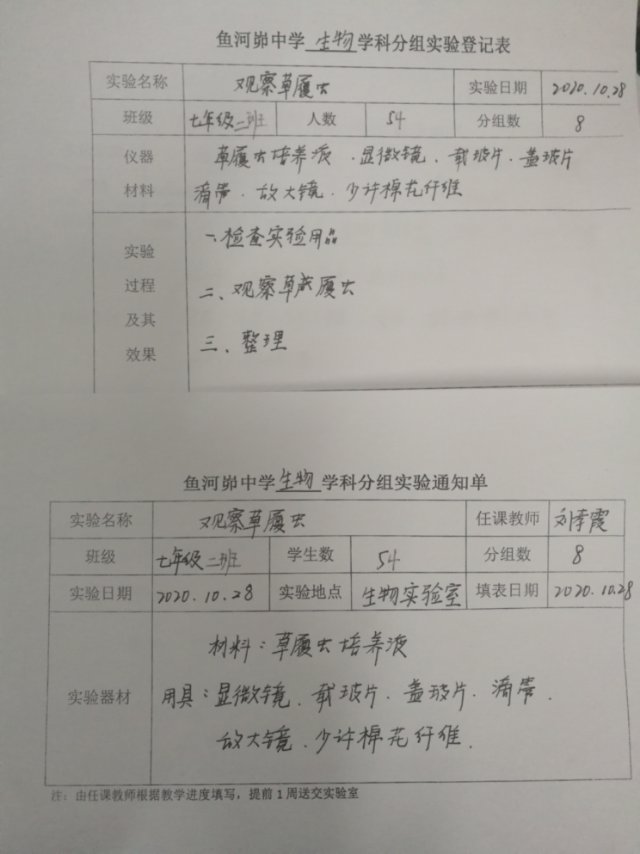 鱼河峁中学 生物 学科分组实验登记表
实验名称 观察草履虫 实验日期 2020.10.28
班级 七年级二班 人数 54 分组数 8
仪器 草履虫培养液、显微镜、载玻片、盖玻片
材料 滴管、放大镜、少许棉花纤维
一、检查实验用品
实验
过程 二、观察草履虫
及其
效果 三、整理
鱼河峁中学 生物 学科分组实验通知单
实验名称 观察草履虫 任课教师 刘 霞
班级 七年级二班 学生数 54 分组数 8
实验日期 2020.10.28 实验地点 生物实验室 填表日期 2020.10.28
材料：草履虫培养液
实验器材 用具：显微镜、载玻片、盖玻片、滴管、
放大镜、少许棉花纤维.
注：由任课教师根据教学进度填写，提前1周送交实验室